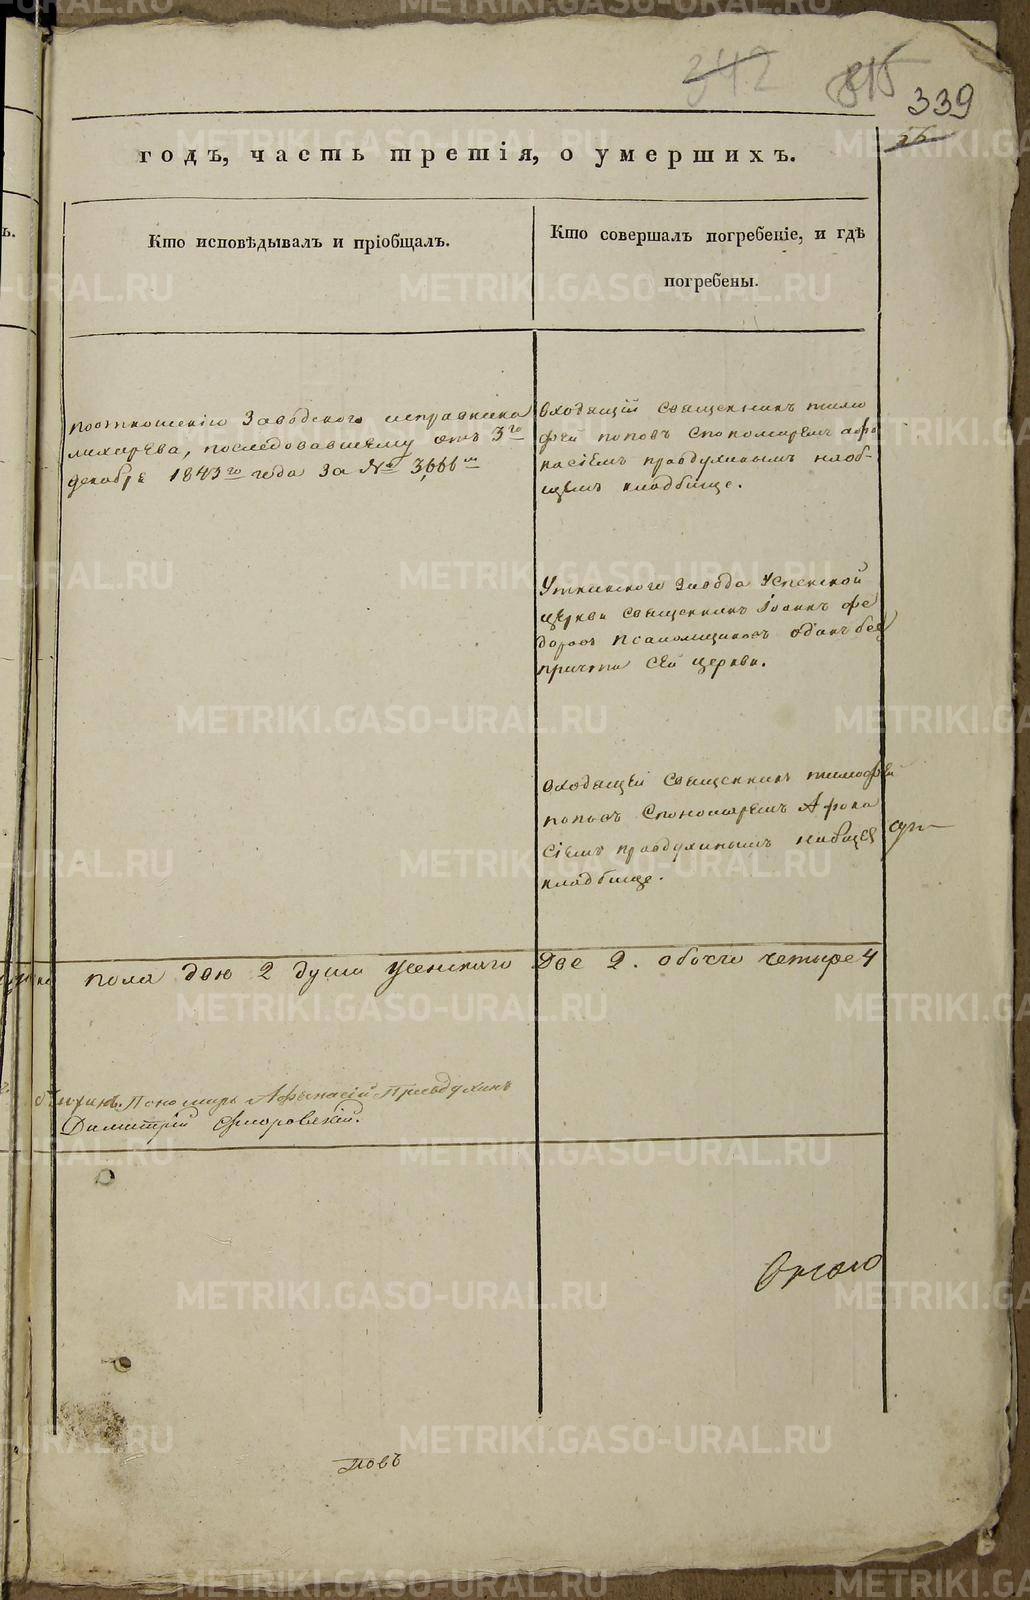 342 815 339
годъ, часть третія, о умершихъ.
Кто исповѣдывалъ и пріобщалъ.
Кто совершалъ погребеніе, и гдѣ
погребены.
поотношенію Заводского исправника
последовавшему отъ 3го
декабря 1843го года за № 3,666м
входящій священникъ тимо
фей поповъ спономаремъ афо
насіемъ правдухинымъ наоб-
щемъ кладбище.
Уткинского завода Успенской
церкви священникъ Іоаннъ фе
доровъ одинъ без
причта сей церкви.
входящей священникъ тимофей
поповъ спономаремъ Афона
сіемъ правдухинымъ наобщей
кладбище.
пола двю 2 души женского Две 2. обоего четыре 4
Пономарь Афанасій Правдухинъ
Димитрій Флоровскій.
повъ
METRIKI.GASO-URAL.RU